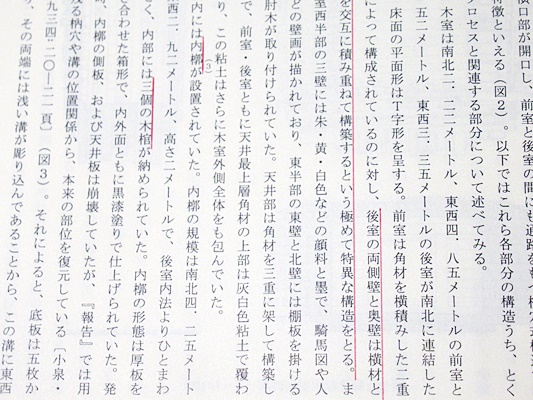 口部が開口し、前室と後室の間にも通路をもつ横穴式
ロセスといえる（図2）。以下ではこれら各部分の構造うち、とく
ロセスと関連する部分について述べてみる。
木室は南北二．二二メートル、東西四．八五メートルの前室と
五二メートル、東西三．三五メートルの後室が南北に連結した
床面の平面形はT字形を呈する。前室は角材を横積みした二重
によって構成されているのに対し、後室の両側壁と奥壁は横材と
を交互に積み重ねて構築するという極めて特異な構造をとる。ま
室西半部の三壁には朱・黄・白色などの顔料と墨で、騎馬図や人
どの壁画が描かれており、東半部の東壁と北壁には棚板を掛ける
肘木が取り付けられていた。天井部は角材を三重に架して構築し
で、前室・後室ともに天井最上層角材の上部は灰白色粘土で覆わ
り、この粘土はさらに木室外側全体をも包んでいた。
内には内槨(3)が設置されていた。内槨の規模は南北四．二五メート
西二．九二メートル、高さ二メートルで、後室内法よりひとまわ
く、内部には三個の木棺が納められていた。内槨の形態は厚板を
合わせた箱形で、内外面ともに黒漆塗りで仕上げられていた。発
、内槨の側板、および天井板は崩壊していたが、『報告』では用
る枘穴や溝の位置関係から、本来の部位を復元している〔小泉・
九三四：二〇―二一頁〕（図3）。それによると、底板は五枚か
、その両端には浅い溝が彫り込んであることから、この溝に東西